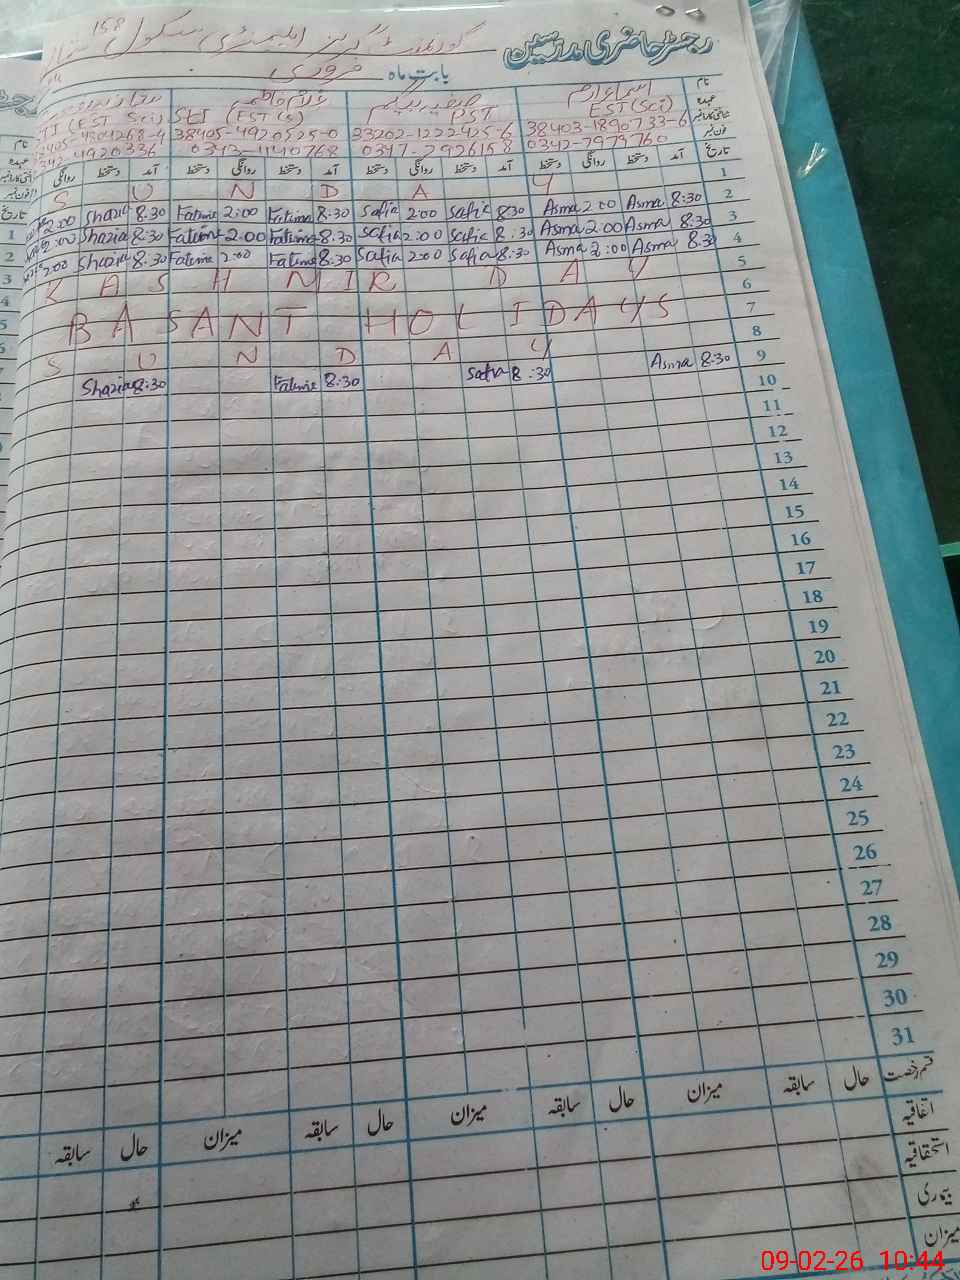 رجسٹر حاضری مدرسین گورنمنٹ گرلز ایلیمنٹری سکول 158
بابت ماہ فروری
نام اسماء ارم صفیہ بیگم غلام فاطمہ
عہدہ EST (Sci) PST SEI (EST (S) (EST Sci)
شناختی کارڈ نمبر 38403-1890733-6 33202-1222425-6 38405-4920525-0
فون نمبر 0342-7979760 0347-7926158 0343-1140768 0342-4920336
تاریخ آمد دستخط روانگی دستخط آمد دستخط روانگی دستخط آمد دستخط روانگی دستخط آمد دستخط روانگی
S U N D A Y 1
2:00 Shazia 8:30 Fatima 2:00 Fatima 8:30 Safia 2:00 Safia 8:30 Asma 2:00 Asma 8:30 2
2:00 Shazia 8:30 Fatima 2:00 Fatima 8:30 Safia 2:00 Safia 8:30 Asma 2:00 Asma 8:30 3
2:00 Shazia 8:30 Fatima 2:00 Fatima 8:30 Safia 2:00 Safia 8:30 Asma 2:00 Asma 8:30 4
K A S H M I R D A Y 5
6
B A S A N T H O L I D A Y S 7
S U N D A Y 8
Shazia 8:30 Fatima 8:30 Safia 8:30 Asma 8:30 9
10
11
12
13
14
15
16
17
18
19
20
21
22
23
24
25
26
27
28
29
30
31
قسم رخصت حال سابقہ میزان حال سابقہ میزان حال سابقہ میزان حال سابقہ
اتفاقیہ
استحقاقیہ
بیماری
میزان
09-02-26 10:44